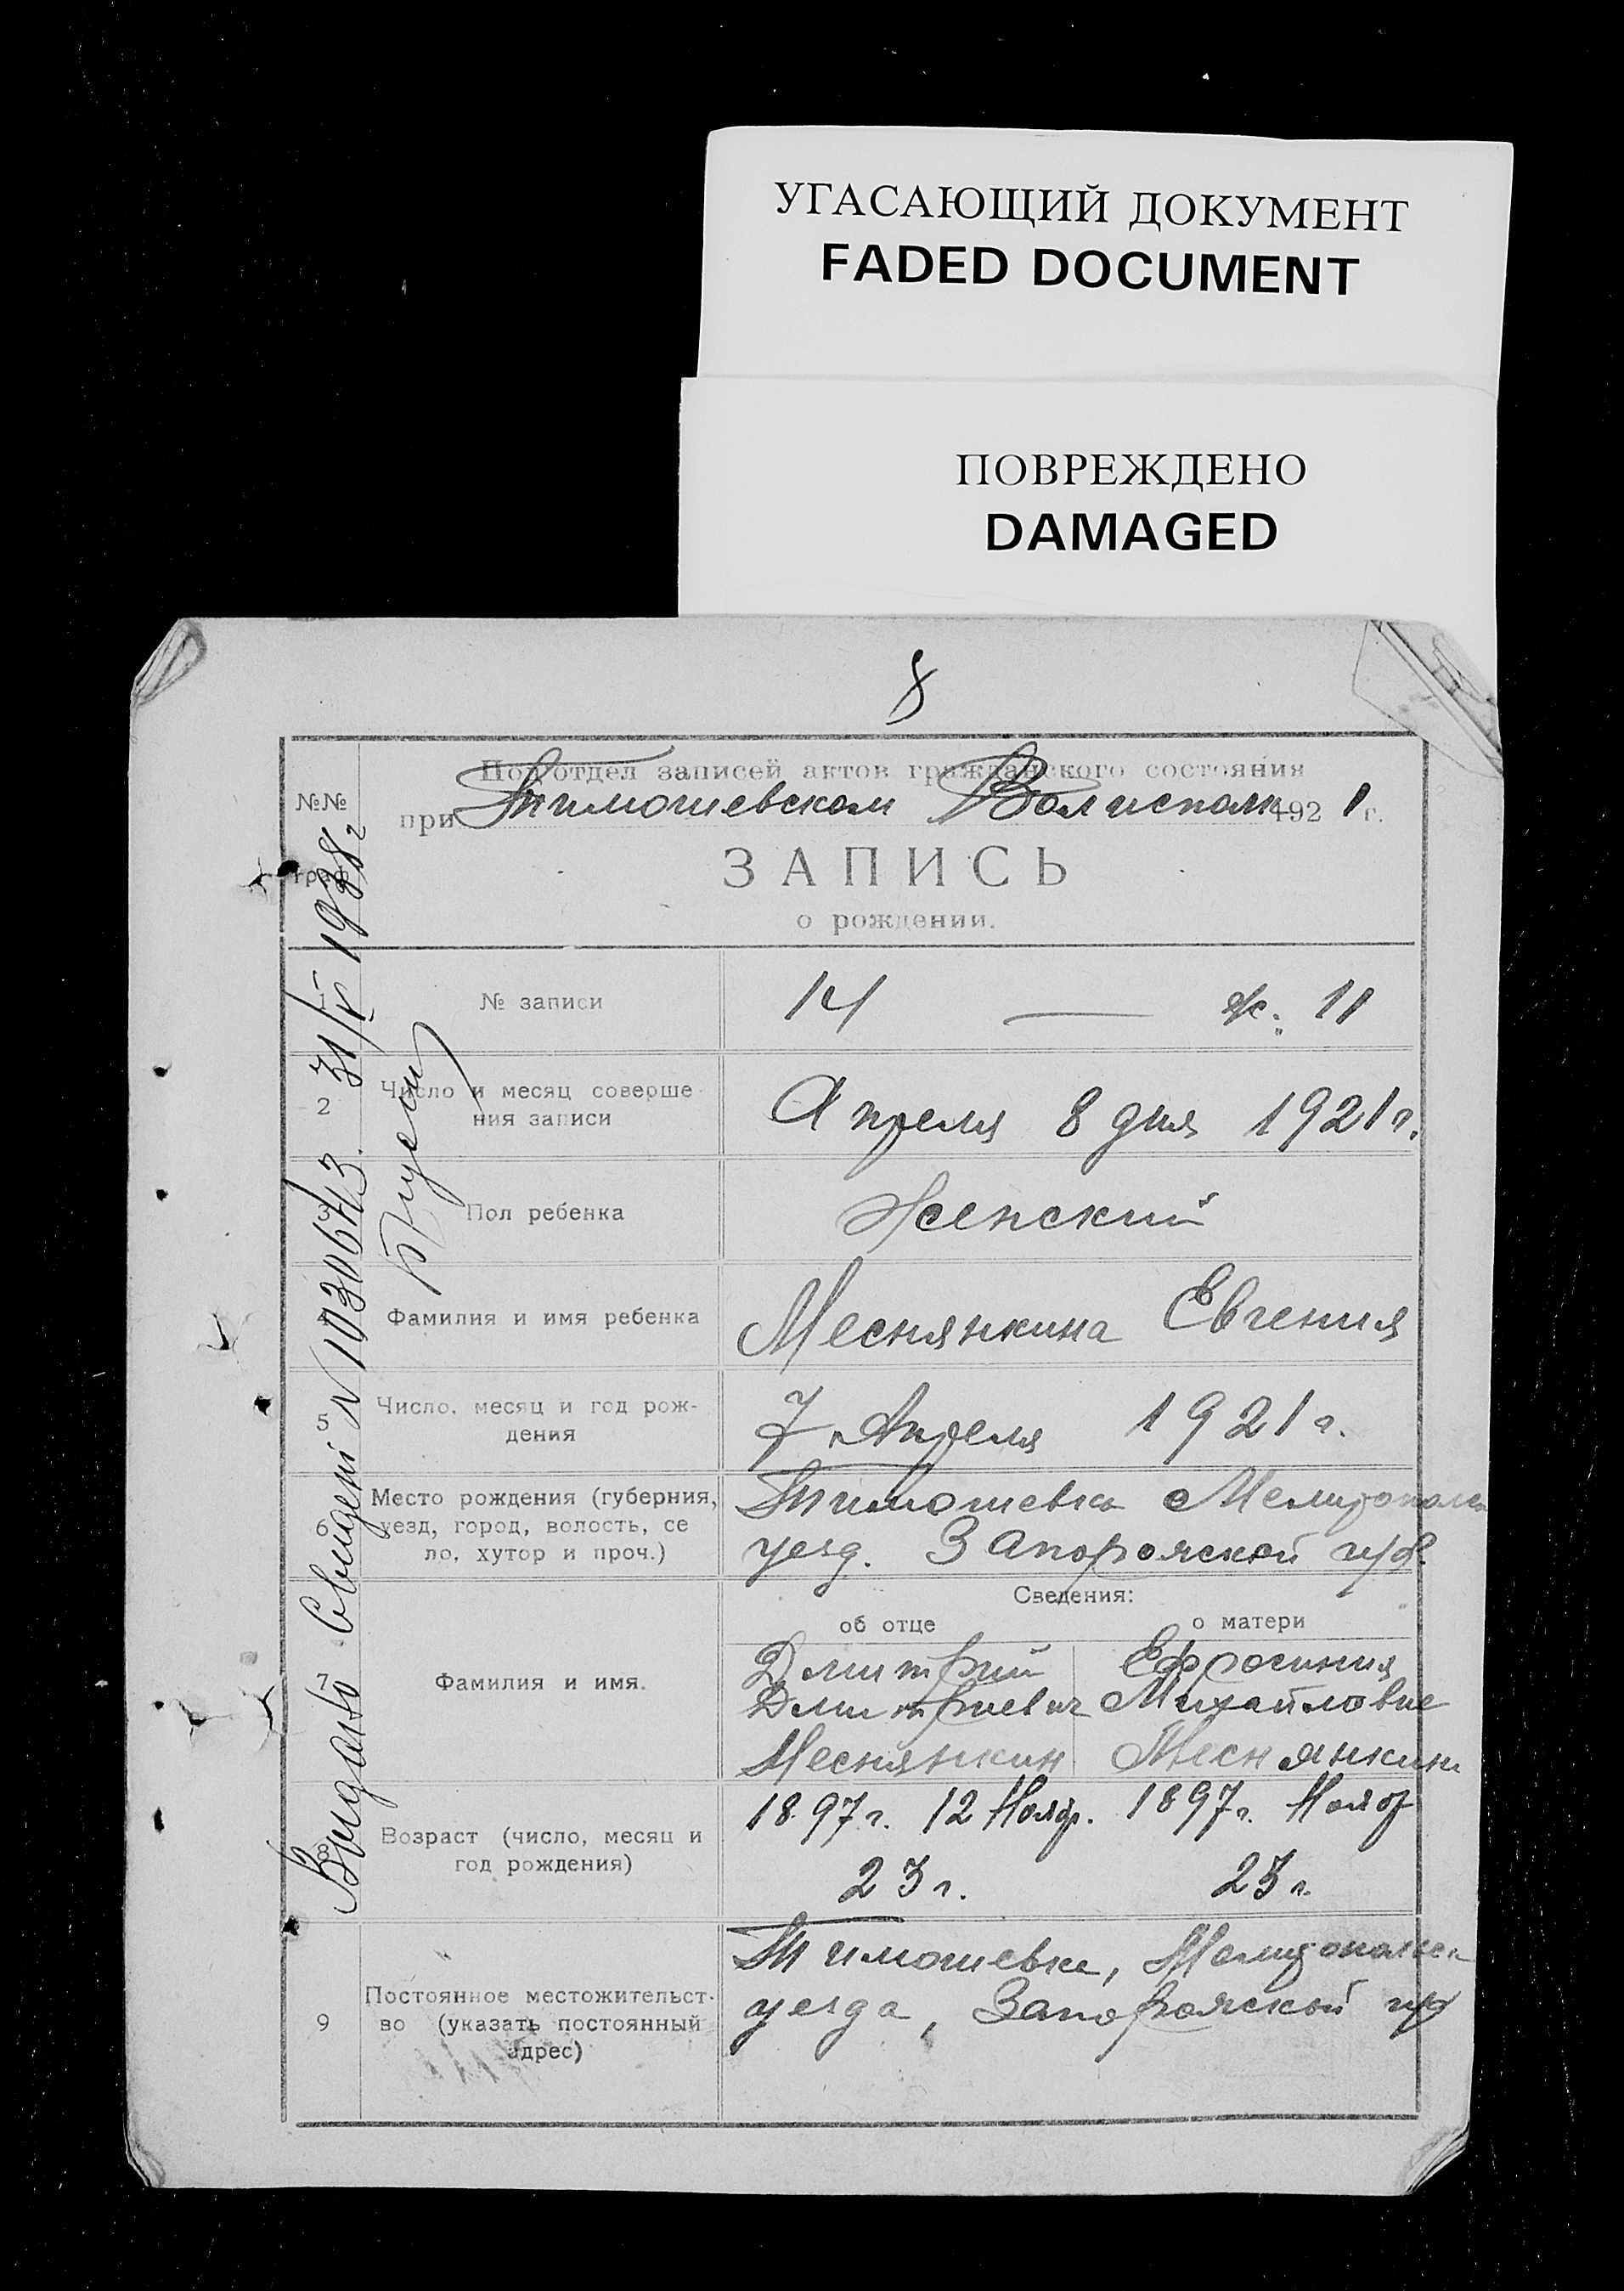 УГАСАЮЩИЙ ДОКУМЕНТ
FADED DOCUMENT
ПОВРЕЖДЕНО
DAMAGED
8
Подотдел записей актов гражданского состояния
при Тимошевском Волисполк 1921 г.
№№
граф
ЗАПИСЬ
о рождении.
1 № записи 14 — ж. 11
2 Число и месяц соверше-
ния записи
Апреля 8 дня 1921 г.
3 Пол ребенка Женский
4 Фамилия и имя ребенка Меснянкина Евгения
5 Число, месяц и год рож-
дения
7 Апреля 1921 г.
6 Место рождения (губерния,
уезд, город, волость, се
ло, хутор и проч.)
Тимошевка Мелитопольск
уезд. Запорожской губ.
Сведения:
об отце
о матери
7 Фамилия и имя.
Дмитрий
Дмитриевич
Меснянкин
Ефросиния
Михайловне
Меснянкин
8 Возраст (число, месяц и
год рождения)
1897 г. 12 Нояб.
23 г.
1897 г. Нояб
23 г.
9 Постоянное местожительст-
во (указать постоянный
адрес)
Тимошевка, Мелитопольск
уезда, Запорожской губ
Выдано Свидет N 1030643. 31/V 1938 г